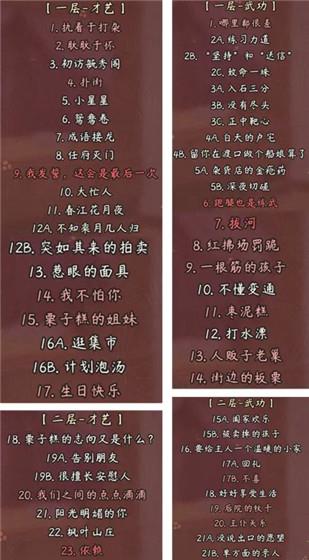 【一层-才艺】
1. 执着于打杂
2. 耿耿于怀
3. 初访毓秀阁
4. 扑街
5. 小星星
6. 鸳鸯卷
7. 成语接龙
8. 任府灭门
9. 我发誓，这会是最后一次
10. 大忙人
11. 春江花月夜
12A. 不知乘月几人归
12B. 突如其来的拍卖
13. 惹眼的面具
14. 我不怕你
15. 栗子糕的姐妹
16A. 逛集市
16B. 计划泡汤
17. 生日快乐
【二层-才艺】
18. 栗子糕的志向又是什么？
19A. 告别朋友
19B. 很擅长安慰人
20. 我们之间的点点滴滴
21. 阳光明媚的你
22. 枫叶山庄
23. 依赖
【一层-武功】
1. 哪里都很差
2A. 练习力道
2B. “坚持”和“送信”
2C. 蚊命一珠
3A. 入石三分
3B. 没有尽头
3C. 正中靶心
4A. 白天的卢宅
4B. 留你在渡口做个船娘算了
5A. 杂货店的金疮药
5B. 深夜切磋
6. 跑腿也是练武
7. 拔河
8. 红拂场罚跪
9. 一根筋的孩子
10. 不懂变通
11. 枣泥糕
12. 打水漂
13. 人贩子老巢
14. 街边的板栗
【二层-武功】
15A. 阖家欢乐
15B. 被卖掉的孩子
16. 要给主人一个温暖的小家
17A. 回礼
17B. 不喜
18. 好好享受生活
19. 后院的秋千
20. 主仆关系
21A. 没说出口的愿望
21B. 单方面的亲人